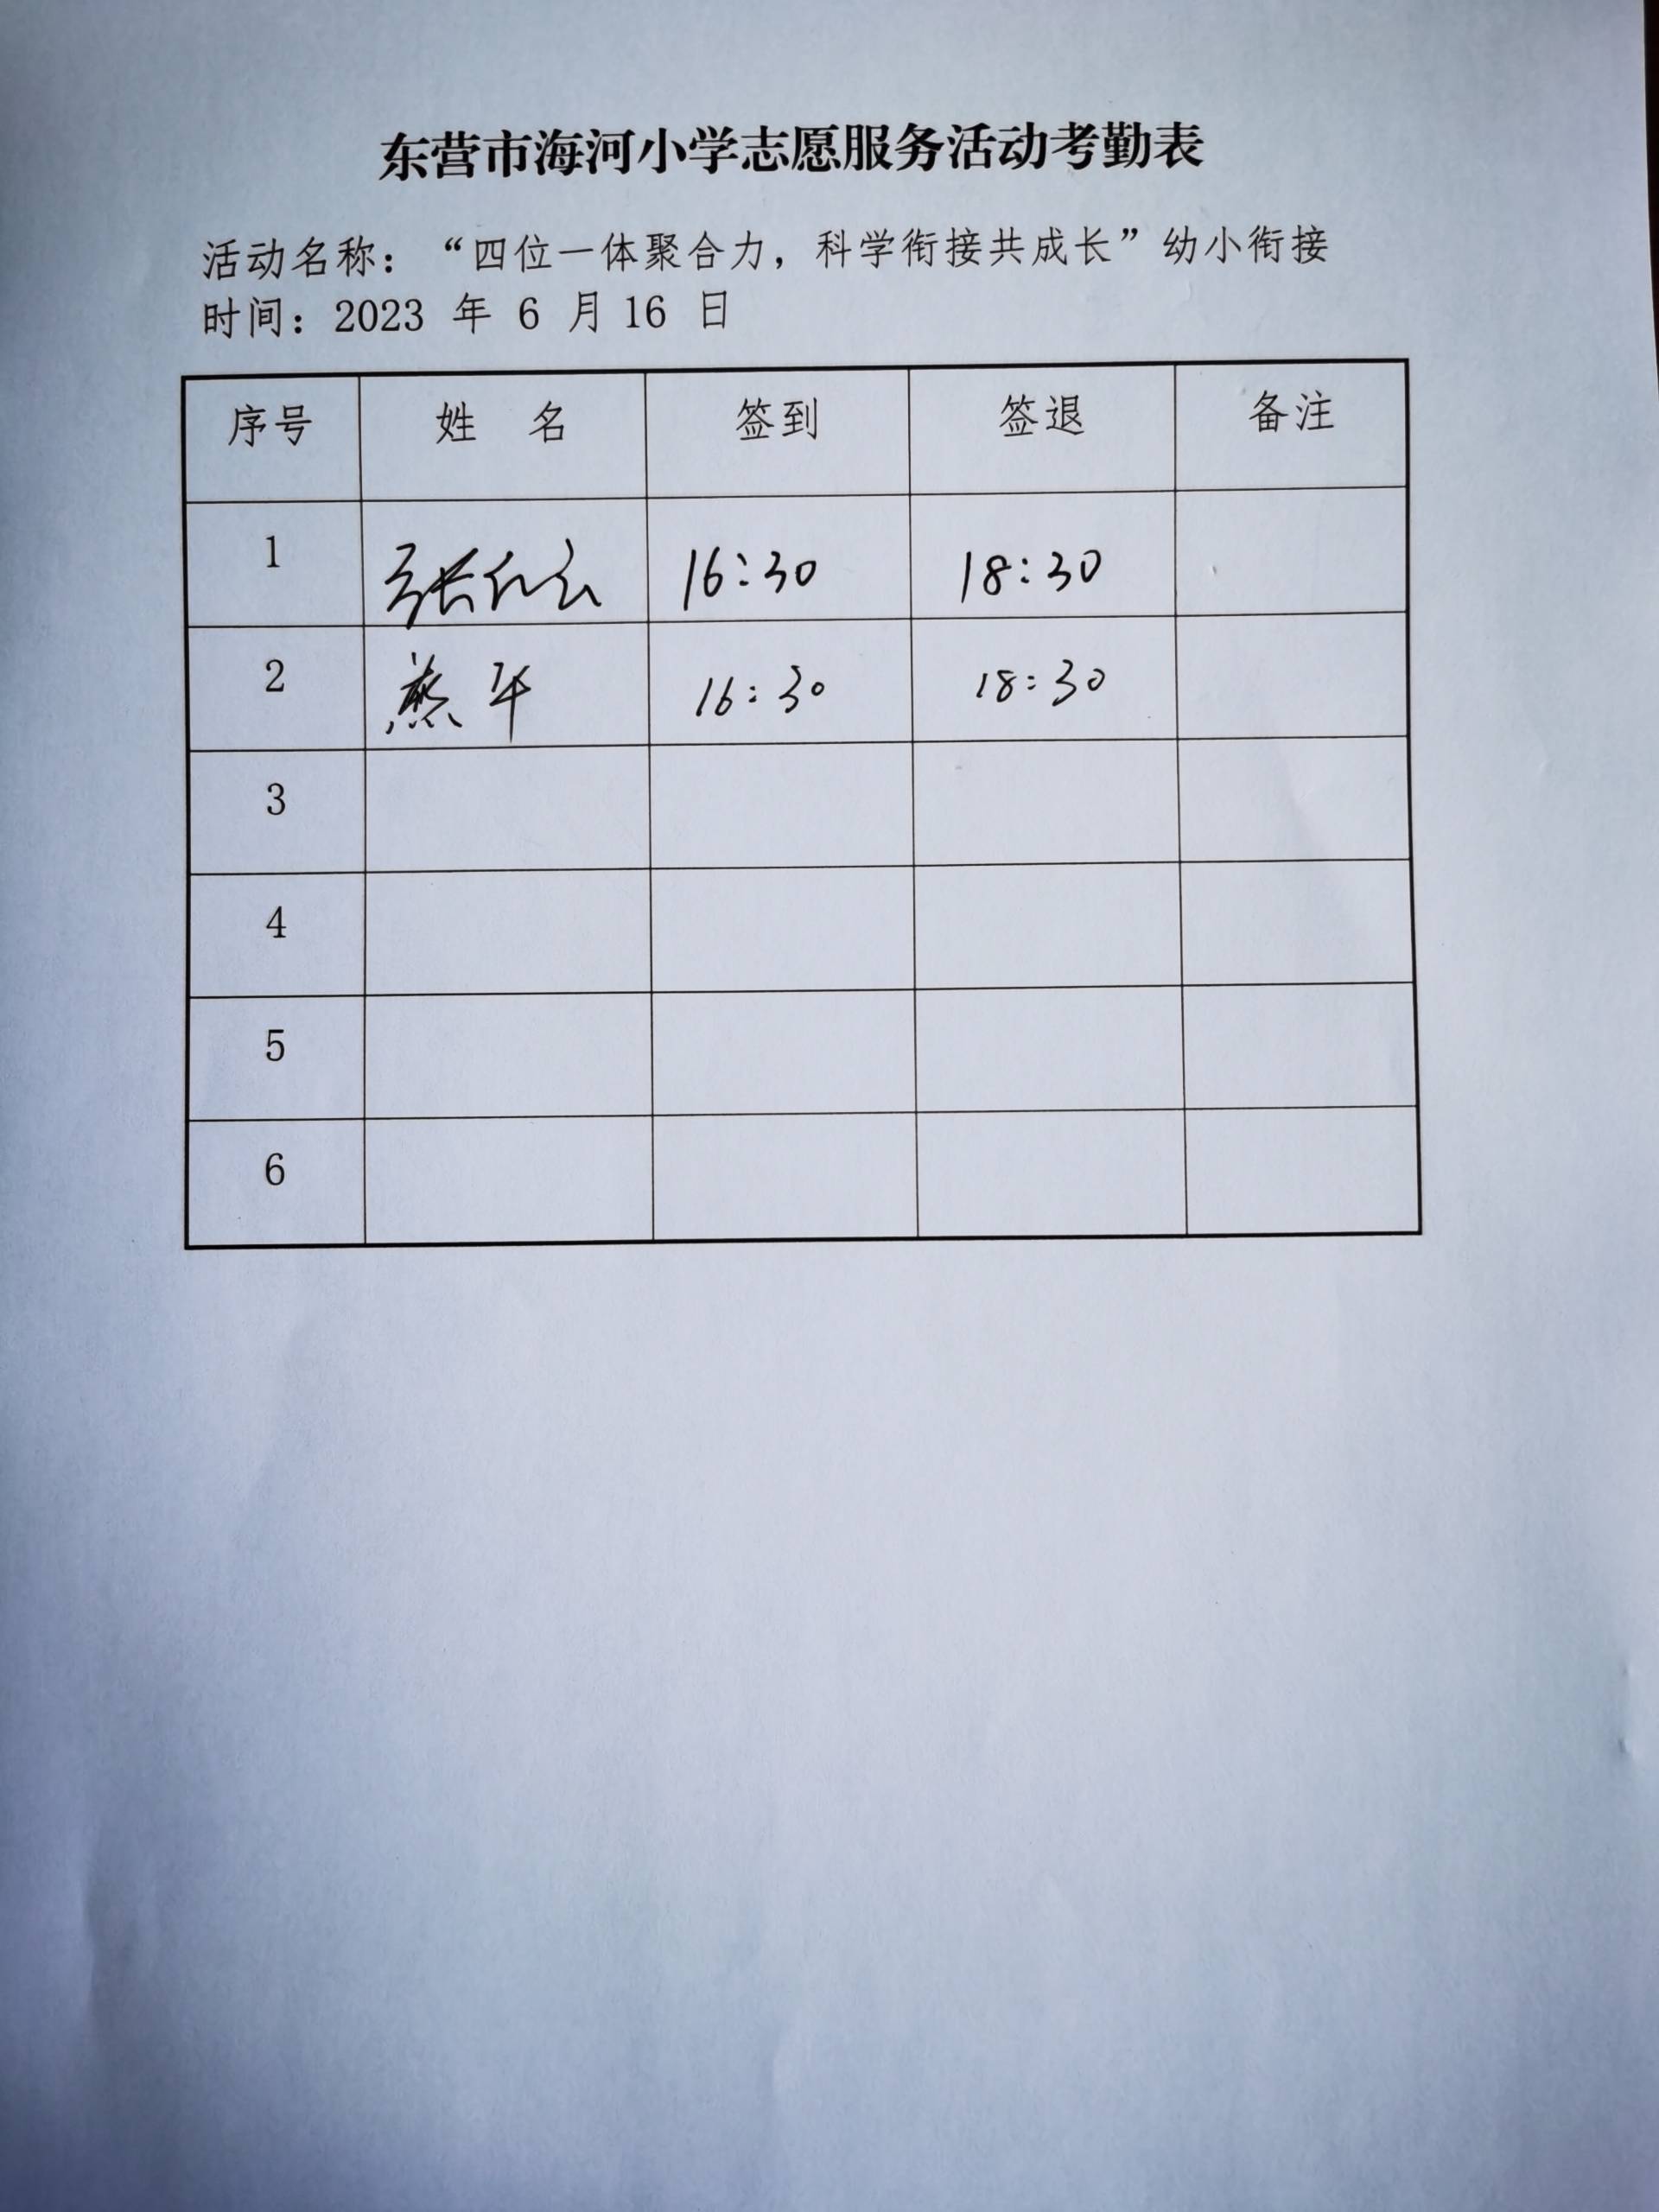 东营市海河小学志愿服务活动考勤表
活动名称：“四位一体聚合力，科学衔接共成长”幼小衔接
时间：2023 年 6 月 16 日
序号 姓 名 签到 签退 备注
1 张 16:30 18:30
2 燕 16:30 18:30
3
4
5
6